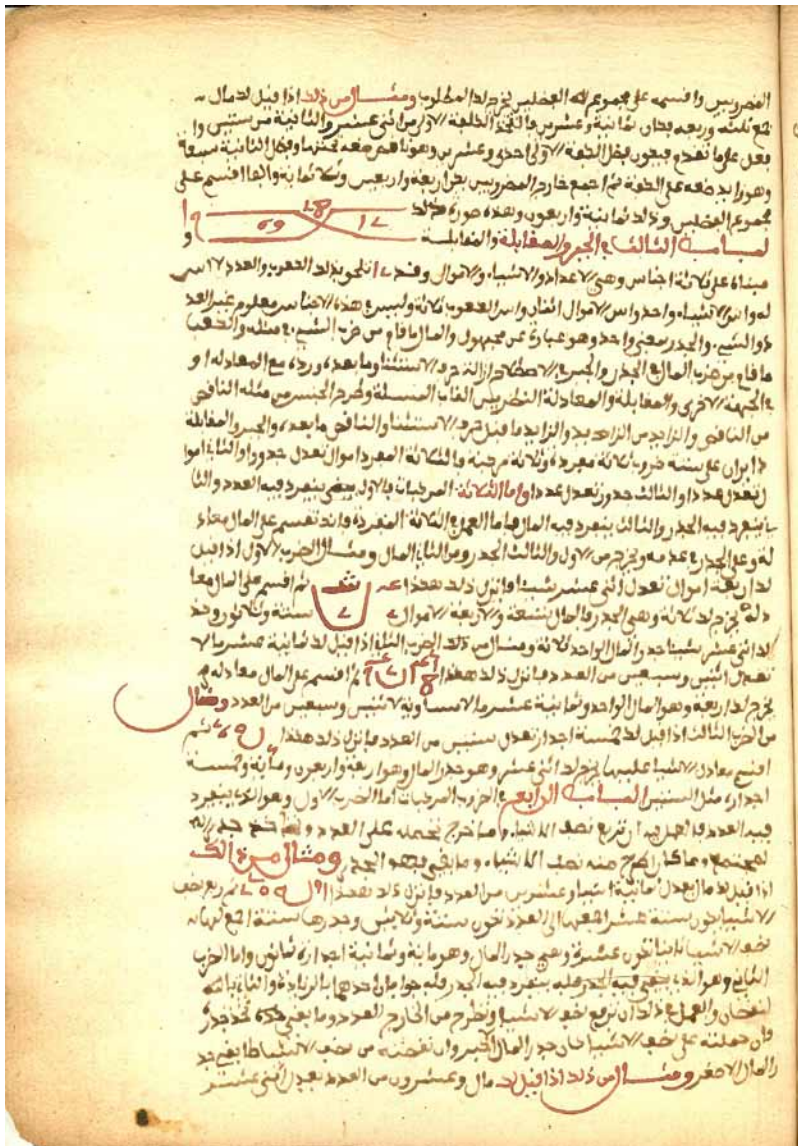 المضروبين واقسمه على مجموع الفضلين يخرج لك المطلوب ومثال من ذلك اذا قيل لك مال
جمع ثلثه وربعه فكان ثمانية وعشرين فالتخذ الكفة الاولى من اثنى عشر والثانية من ستين وا
فعل على ما تقدم فيكون فضل الكفة الاولى احدى وعشرين وهو ناقص ضعه تحتها وفضل الثانية سبعة
وهو زايد ضعه على الكفة ثم اجمع خارج المضروبين يكن اربعة واربعين وثلاثماية والفا اقسم على
مجموع الفضلين وذلك ثمانية واربعون وهذه صورة ذلك
الباب الثالث في الجبر والمقابلة والمقابلة و
مبناه على ثلاثة اجناس وهي الاعداد والاشياء والاموال وقد تلحق بذلك الكعوب والعدد لا اس
له واس الاشياء واحد واس الاموال اثنان واس الكعوب ثلاثة وليس في هذه الاجناس معلوم غير العد
د والشيء والجذر بمعنى واحد وهو عبارة عن مجهول والمال ما قام من ضرب الشيء في مثله والكعب
ما قام من ضرب المال في الجذر والجبر في الاصطلاح ازالة حرف الاستثنا وما بعده ورده مع المعادلة او
في الجهة الاخرى والمقابلة والمعادلة النظر بين المسئلة وطرح الجنس من مثله الناقص
من الناقص والزايد من الزايد والزايد ما قبل حرف الاستثنا والناقص ما بعده والجبر والمقابلة
دايران على ستة ضروب ثلاثة مفردة وثلاثة مركبة فالثلاثة المفردة اموال تعدل جذورا والثاني اموا
ل تعدل عددا والثالث جذور تعدل عددا واما الثلاثة المركبات فالاول ينفرد فيه العدد والثا
ني ينفرد فيه الجذر والثالث ينفرد فيه المال فاما العمل في الثلاثة المفردة فانك تقسم على المال معاد
له وعلى الجذر في عدمه ويخرج من الاول والثالث الجذر ومن الثاني المال ومثال الضرب الاول اذا قيل
لك اربعة اموال تعدل اثنى عشر شيئا فانزل ذلك هكذا ثم اقسم على المال معا
دله يخرج لك ثلاثة وهي الجذر فالمال تسعة والاربعة الاموال ستة وثلاثون وذ
لك اثنى عشر شيئا جذر المال الواحد ثلاثة ومثال من ذلك الضرب الثاني اذا قيل لك ثمانية عشر مالا
تعدل اثنين وسبعين من العدد فانزل ذلك هكذا ثم اقسم على المال معادله
يخرج لك اربعة وهو المال الواحد وثمانية عشر مالا مساوية لاثنين وسبعين من العدد ومثال
من الضرب الثالث اذا قيل لك خمسة اجذار تعدل ستين من العدد فانزل ذلك هكذا ثم
اقسم معادل الاشيا عليها يخرج لك اثنى عشر وهو جذر المال وهو اربعة واربعون وماية وخمسة
اجذاره مثل الستين الباب الرابع في الضروب المركبات اما الضرب الاول وهو الذي ينفرد
فيه العدد فالعمل فيه ان تربع نصف الاشياء وما خرج تحمله على العدد وخذ جذر
المجتمع وما كان اطرح منه نصف الاشياء وما بقي فهو الجذر ومثال من ذالك
اذا قيل لك مال يعدل ثمانية اشيا وعشرين من العدد فانزل ذلك هكذا ثم ربع نصف
الاشيا يكون ستة عشر اجمعها الى العدد تكون ستة وثلاثين وجذرها ستة اجمع لها
نصف الاشيا تكون عشرة وهي جذر المال وهو ماية وثمانية اجذاره ثمانون واما الضرب
الثاني وهو الذي ينفرد فيه الجذر فله جوابان احدهما بالزيادة والثاني با
لنقصان والعمل في ذلك ان تربع نصف الاشيا وتطرح من الخارج العدد وما بقي خذ جذره
وان حملته على نصف الاشيا كان جذر المال الاكبر وان نقصته من نصف الاشيا بقي جذ
ر المال الاصغر ومثال من ذلك اذا قيل لك مال وعشرون من العدد يعدل اثنى عشر